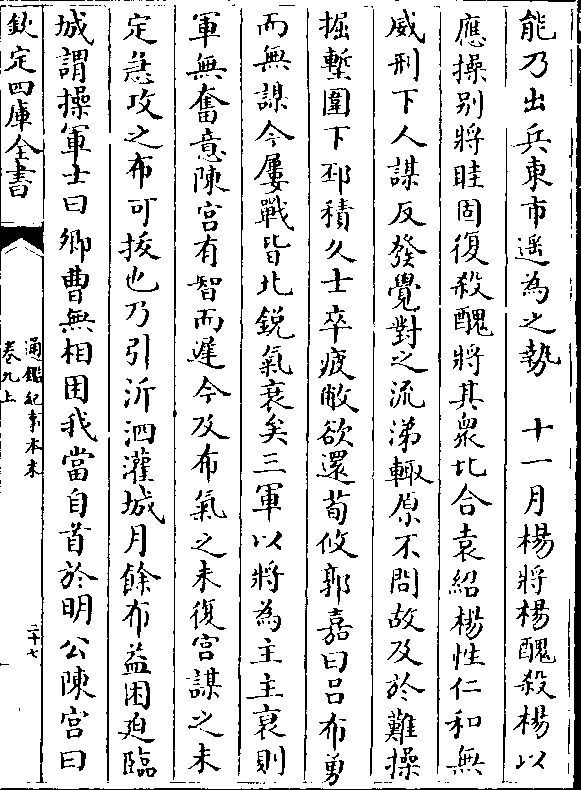 能乃出兵東市遥為之勢　十一月楊將楊醜殺楊以
應操别將眭固復殺醜將其衆北合袁紹楊性仁和無
威刑下人謀反發覺對之流涕輙原不問故及於難操
掘塹圍下邳積久士卒疲敝欲還荀攸郭嘉曰吕布勇
而無謀今屢戰皆北鋭氣衰矣三軍以將為主主衰則
軍無奮意陳宫有智而遲今及布氣之未復宫謀之未
定急攻之布可拔也乃引沂泗灌城月餘布益困迫臨
城謂操軍士曰卿曹無相困我當自首於明公陳宫曰
欽定四庫全書
通鑑紀事本末
卷九上
二十七